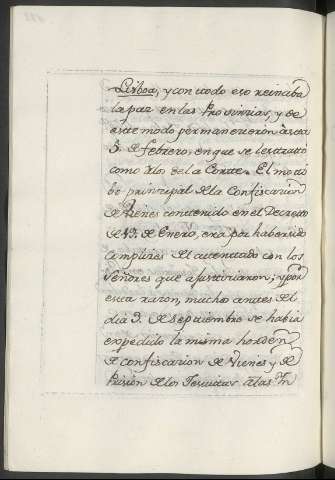 Lisboa, y con todo eso reinaba
la paz en las Provinzias, y de
este modo permanecieron àsta
5. de febrero, en que se les trató
como à los de la Corte. El moti
bo prinzipal de la Confiscacion
de Vienes contenido en el Decreto
de 19. de Enero, era por haber sido
complizes del atentado con los
Señores que ajustiziaron; y por
esta razon, mucho antes del
dia 3. de Septiembre se habia
expedido la misma horden
de confiscacion de Vienes y de
Prision de los Jesuitas à las